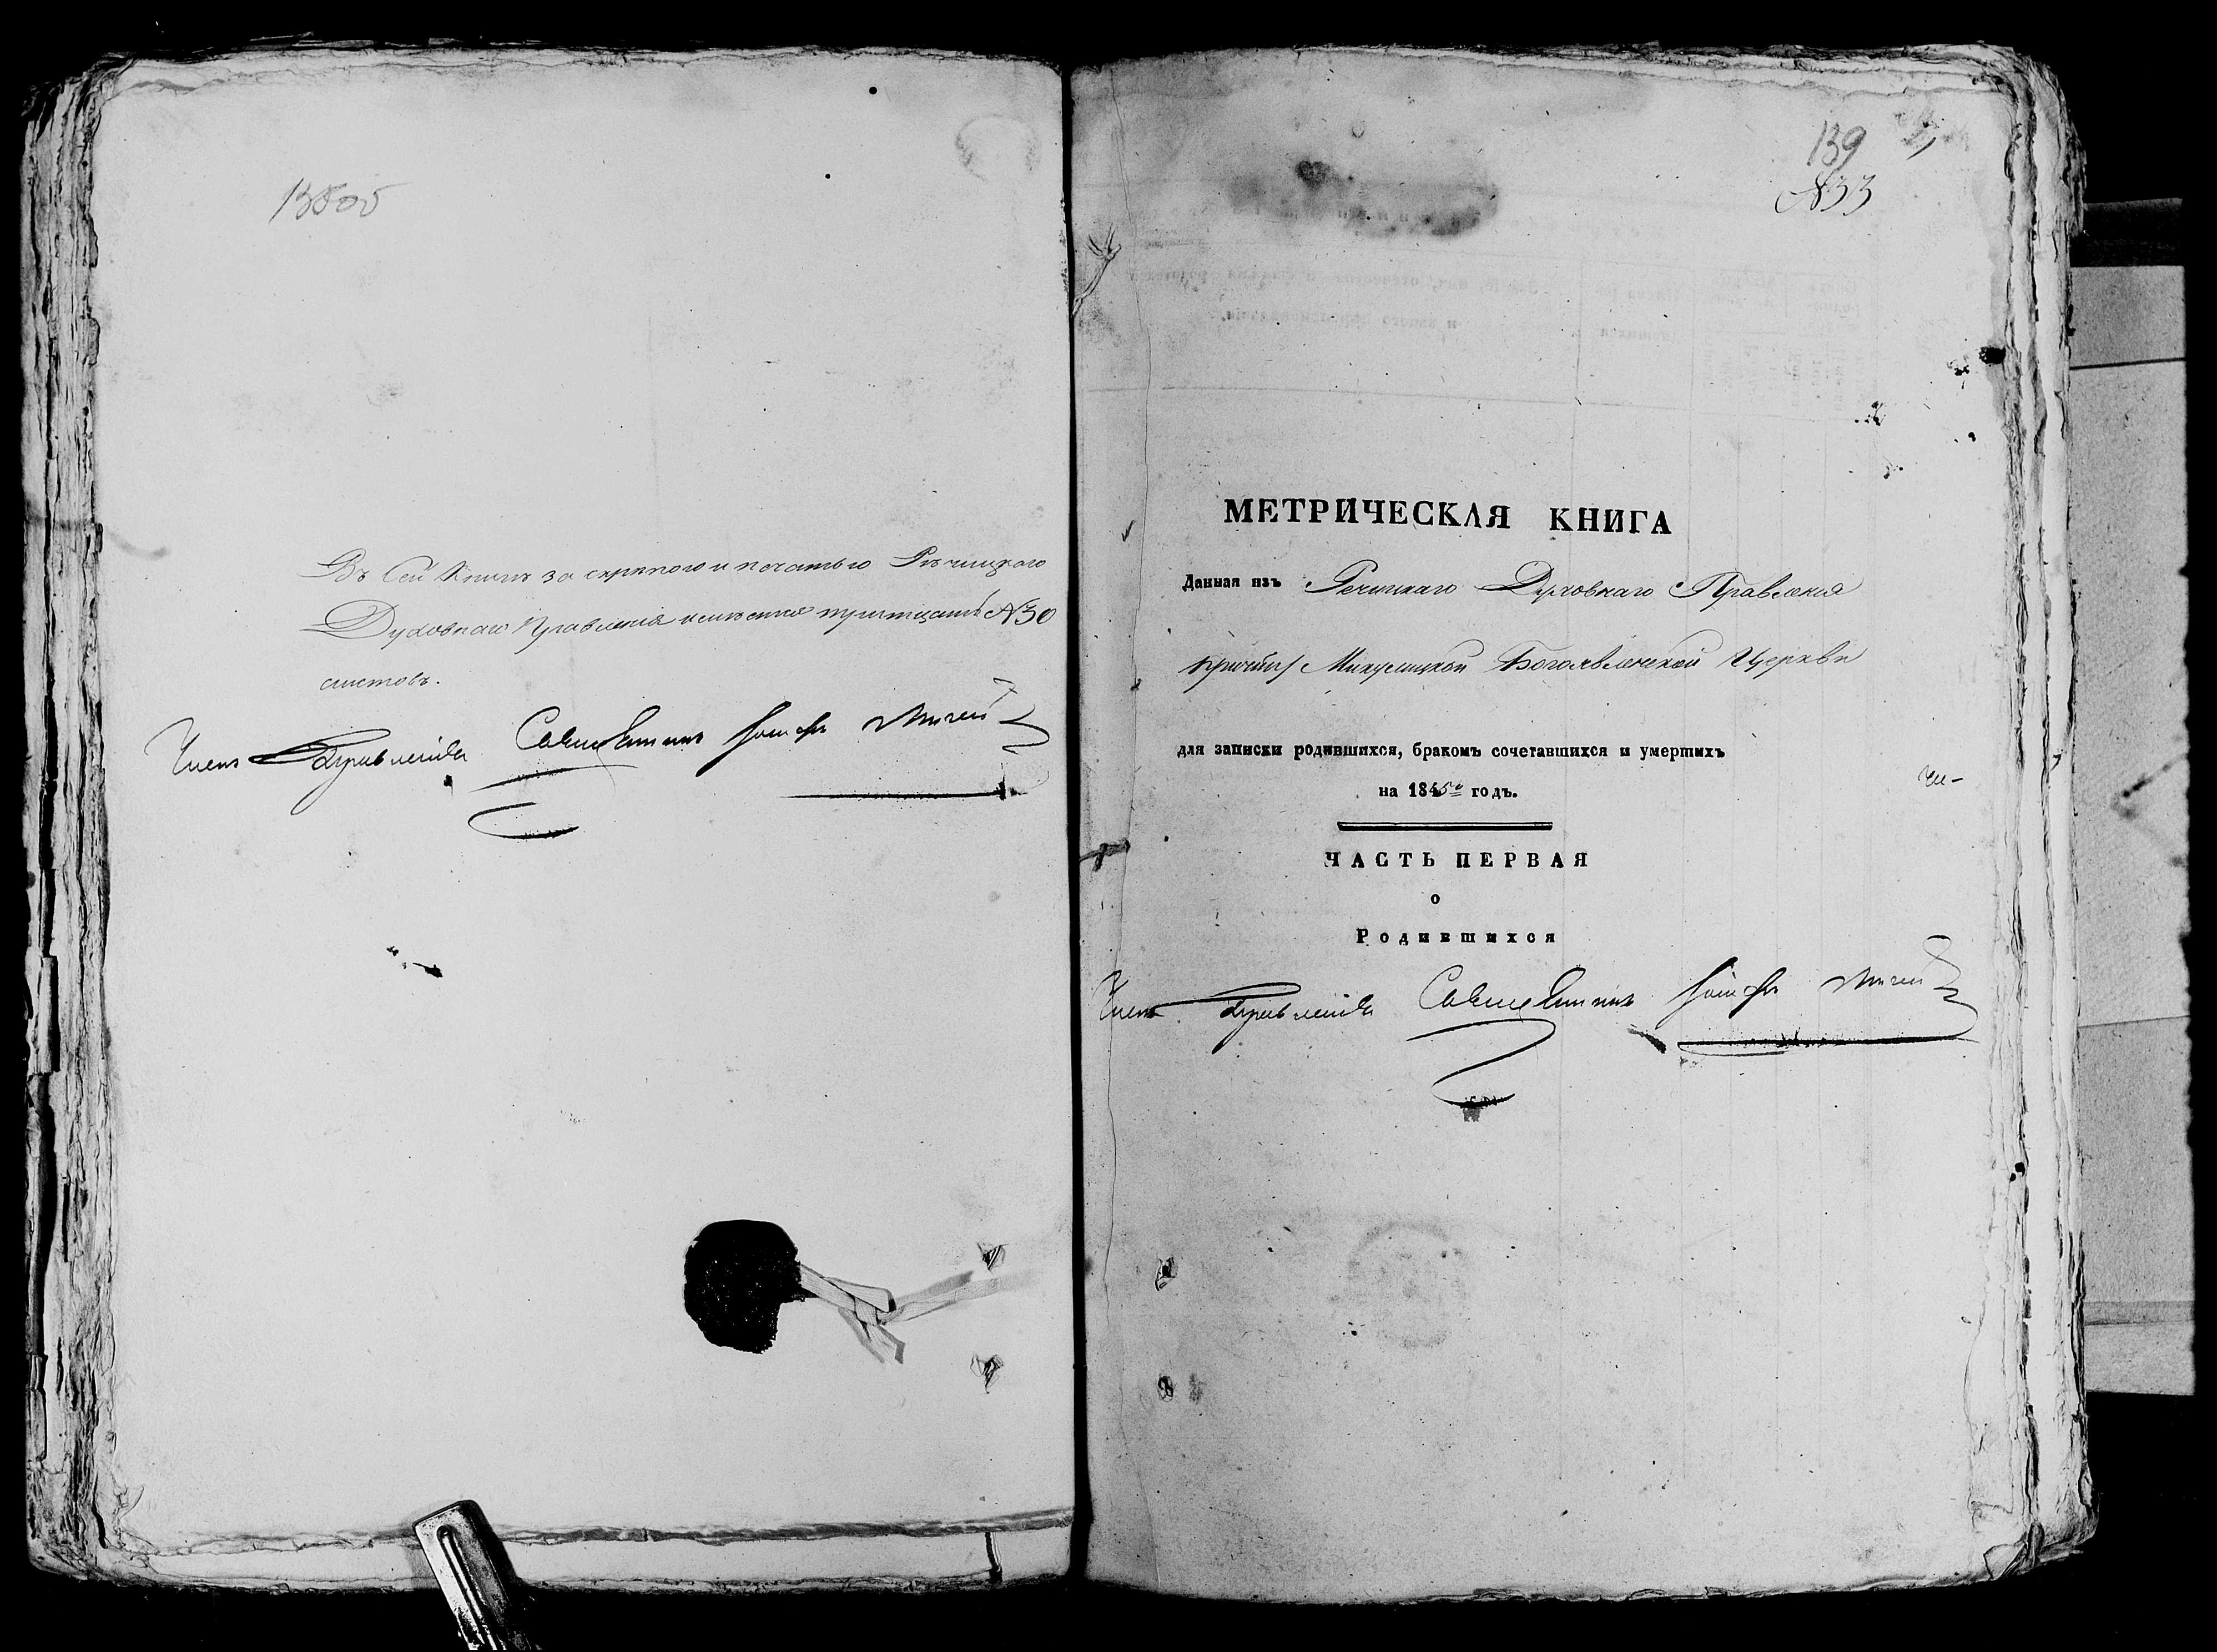 138 об
Въ Сей Книге за скрепою и печатью Речицкаго
Духовнаго Правления тритцать №30
листовъ.
Членъ Правления Священникъ
139
№33
МЕТРИЧЕСКАЯ КНИГА
Данная изъ Речицкаго Духовнаго Правления
причту Микулицкой Богоявленской Церкви
для записки родившихся, бракомъ сочетавшихся и умершихъ
на 1845й годъ.
ЧАСТЬ ПЕРВАЯ
о
Родившихся
Членъ Правления Священникъ